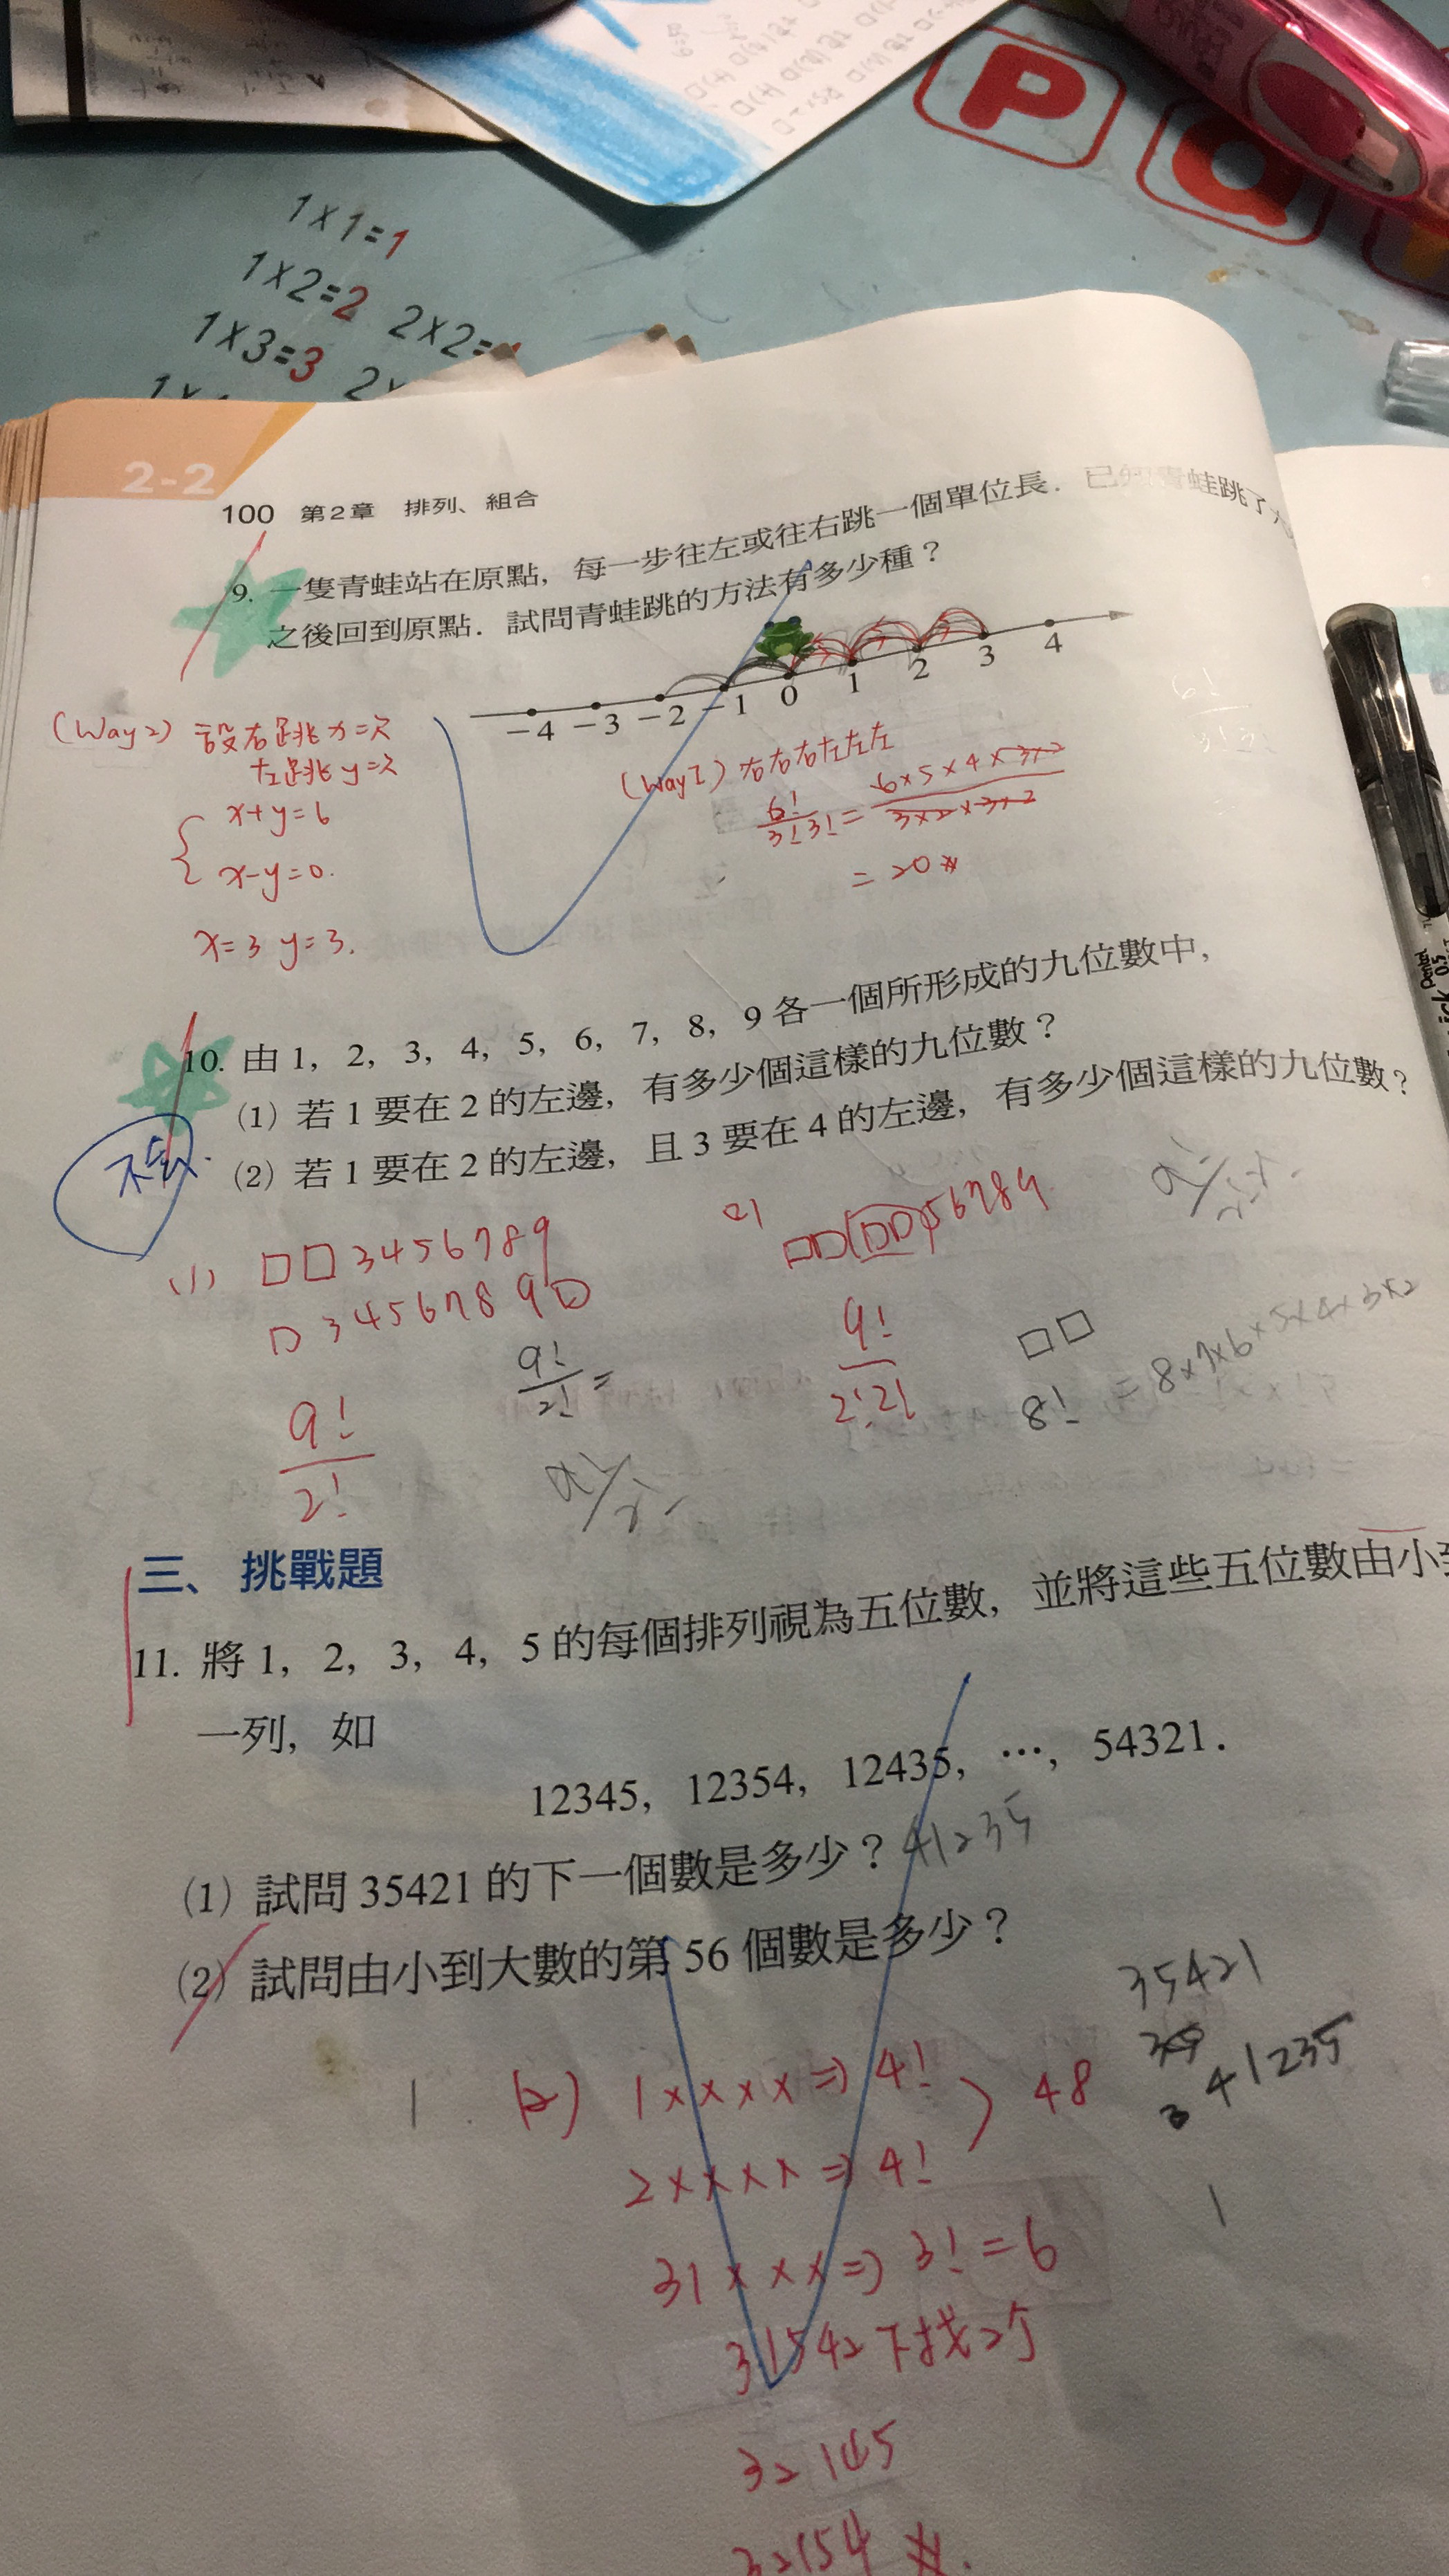 P
a
1×1=1
1×2=2 2×2=
1×3=3
2-2
100 第2章 排列、組合
9. 一隻青蛙站在原點，每一步往左或往右跳一個單位長．已知青蛙跳了
之後回到原點．試問青蛙跳的方法有多少種？
-4 -3 -2 -1 0 1 2 3 4
(Way2) 設右跳x=次
左跳y=次
x+y=6
x-y=0.
x=3 y=3.
(Way I) 右右右左左左
6!/3!3! = 6×5×4×3×2/3×2×3×2
= 20
10. 由 1，2，3，4，5，6，7，8，9 各一個所形成的九位數中，
(1) 若 1 要在 2 的左邊，有多少個這樣的九位數？
(2) 若 1 要在 2 的左邊，且 3 要在 4 的左邊，有多少個這樣的九位數？
(1) □□3456789
□3456789□
9!/2!
9!/2! =
(2) □□(□□)56789
9!/2!2!
□□
8! = 8×7×6×5×4×3×2
三、挑戰題
11. 將 1，2，3，4，5 的每個排列視為五位數，並將這些五位數由小到
一列，如
12345，12354，12435，…，54321．
(1) 試問 35421 的下一個數是多少？ 41235
(2) 試問由小到大數的第 56 個數是多少？
35421
41235
3
(2) 1×××× => 4!
2×××× => 4!
48
31××× => 3! = 6
31542下找2个
32145
32154
Pentel 0.5